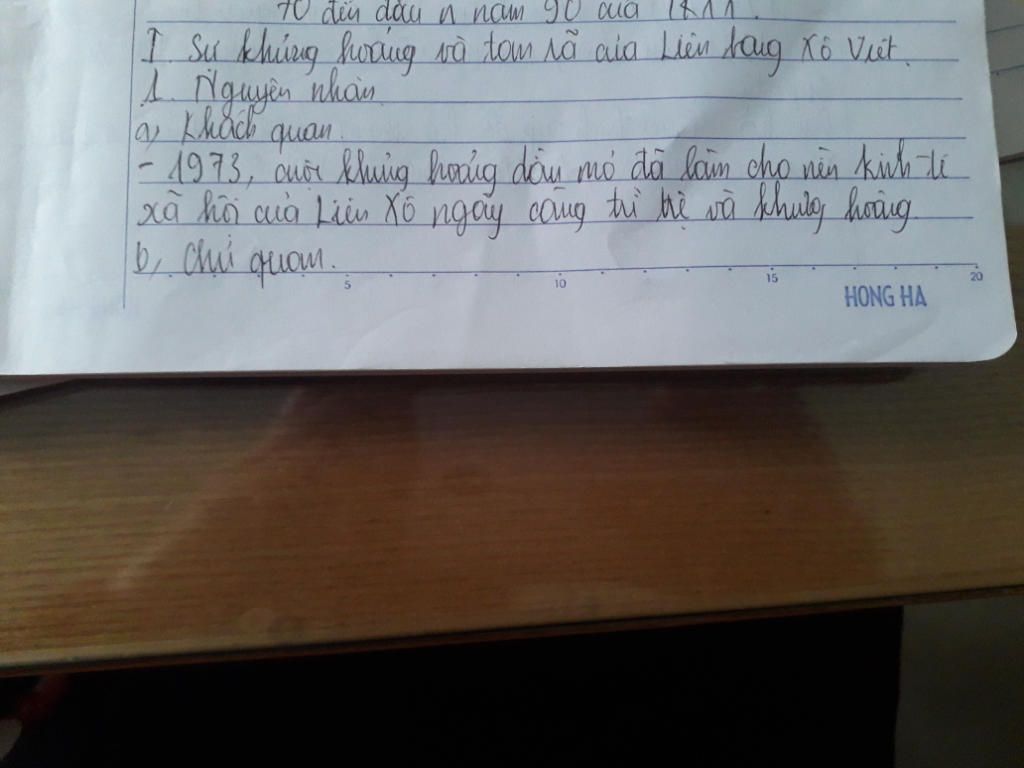 70 đến đầu n năm 90 của TKXX.
I. Sự khủng hoảng và tan rã của Liên bang Xô Viết.
1. Nguyên nhân
a, Khách quan.
- 1973, cuộc khủng hoảng dầu mỏ đã làm cho nền kinh-tế
xã hội của Liên Xô ngày càng trì trệ và khủng hoảng.
b, Chủ quan.
5 10 15 20
HONG HA